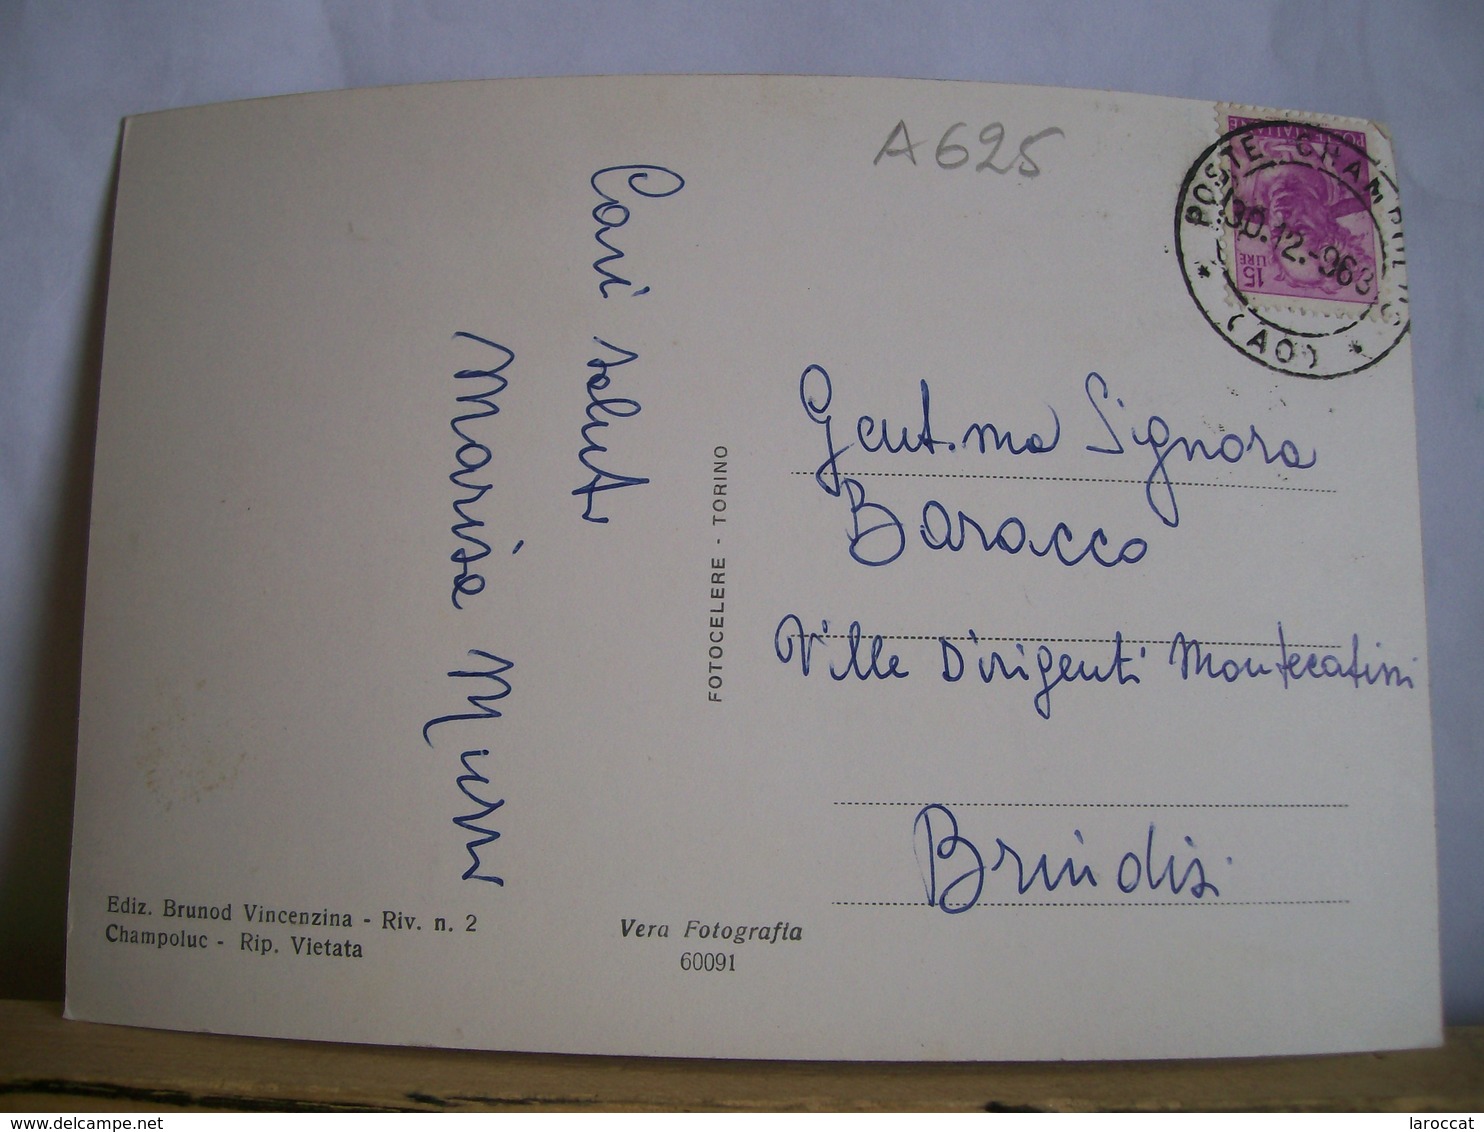 A625
POSTE ITALIANE
15 LIRE
POSTE CHAMPOLUC
30.12.-963
(AO)
Cari saluti
Marisa
Gent.ma Signora
Baracco
Ville Dirigenti Montecatini
Brindisi
FOTOCELERE - TORINO
Ediz. Brunod Vincenzina - Riv. n. 2
Champoluc - Rip. Vietata
Vera Fotografia
60091
delcampe.net
laroccat